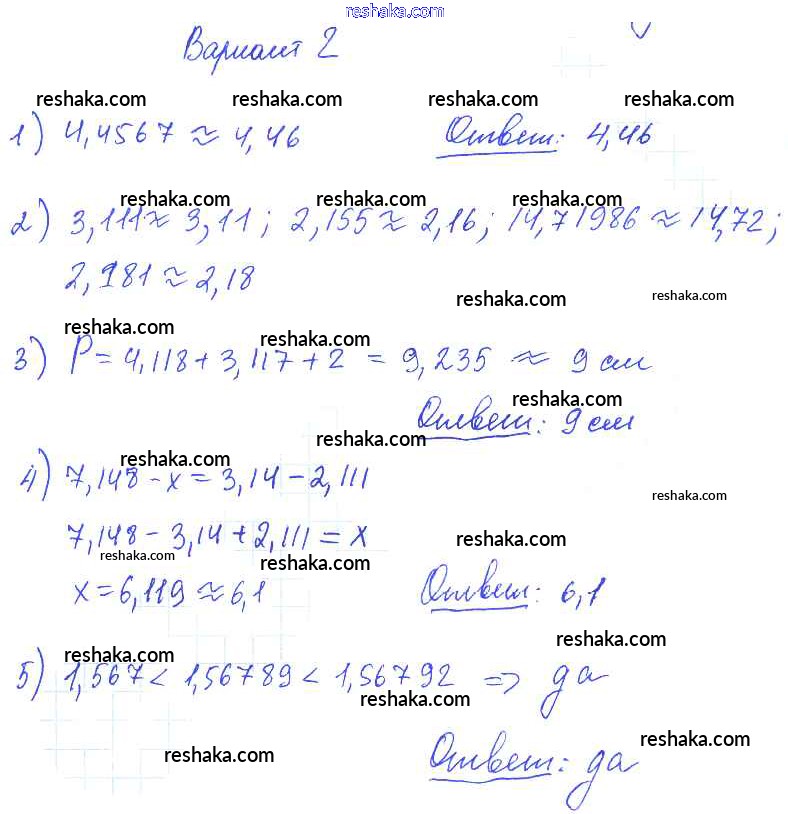 reshaka.com
Вариант 2
reshaka.com reshaka.com reshaka.com reshaka.com
1) 4,4567 ≈ 4,46 Ответ: 4,46
reshaka.com reshaka.com reshaka.com
2) 3,111 ≈ 3,11; 2,155 ≈ 2,16; 14,71986 ≈ 14,72;
2,181 ≈ 2,18
reshaka.com reshaka.com
reshaka.com reshaka.com
3) P = 4,118 + 3,117 + 2 = 9,235 ≈ 9 см
reshaka.com
Ответ: 9 см
reshaka.com
reshaka.com
4) 7,148 - x = 3,14 - 2,111
reshaka.com
7,148 - 3,14 + 2,111 = x
reshaka.com reshaka.com reshaka.com
x = 6,119 ≈ 6,1 Ответ: 6,1
reshaka.com reshaka.com
5) 1,567 < 1,56789 < 1,56792 => да
reshaka.com
reshaka.com reshaka.com
Ответ: да